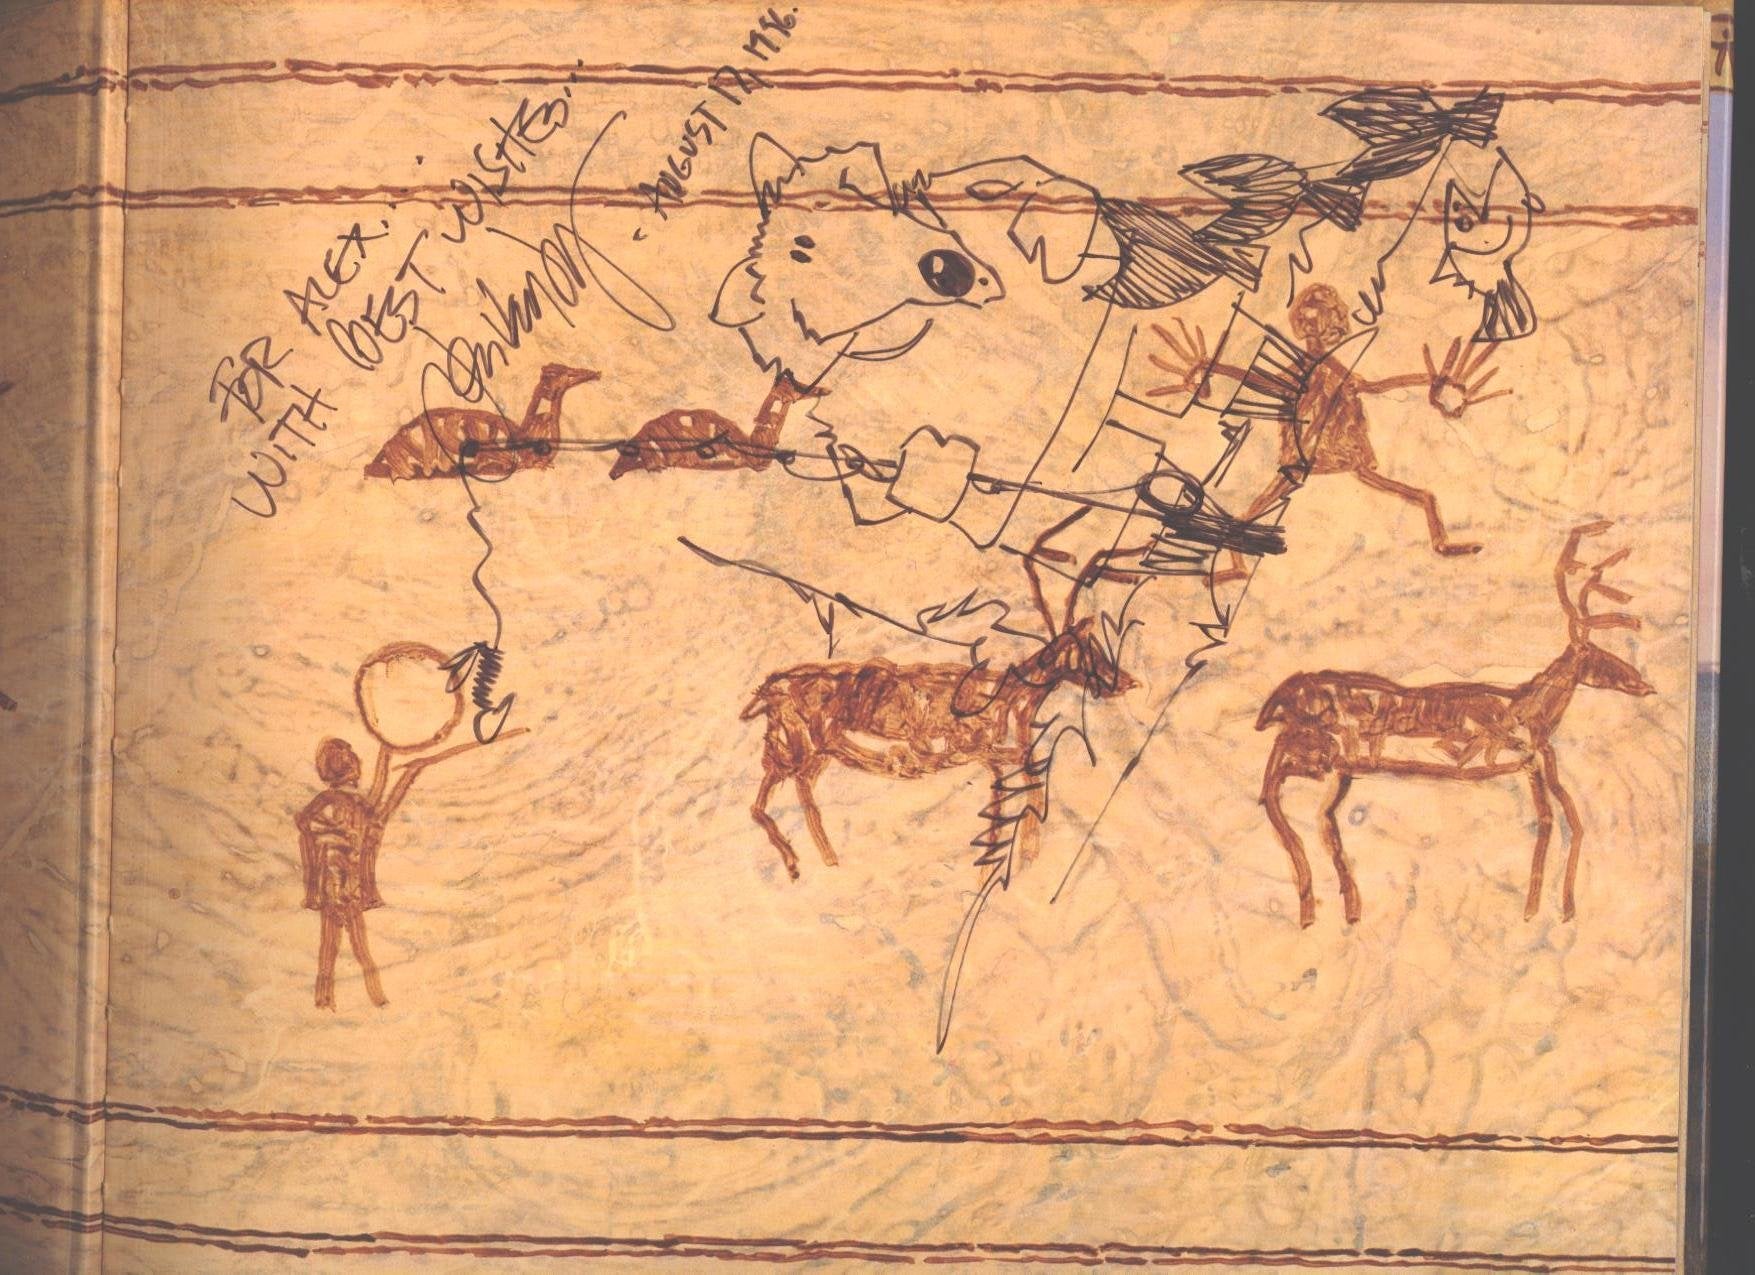 FOR ALEX...
WITH BEST WISHES...
- AUGUST 17, 1996.